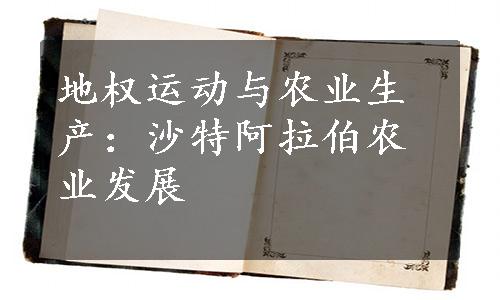 地权运动与农业生
产：沙特阿拉伯农
业发展